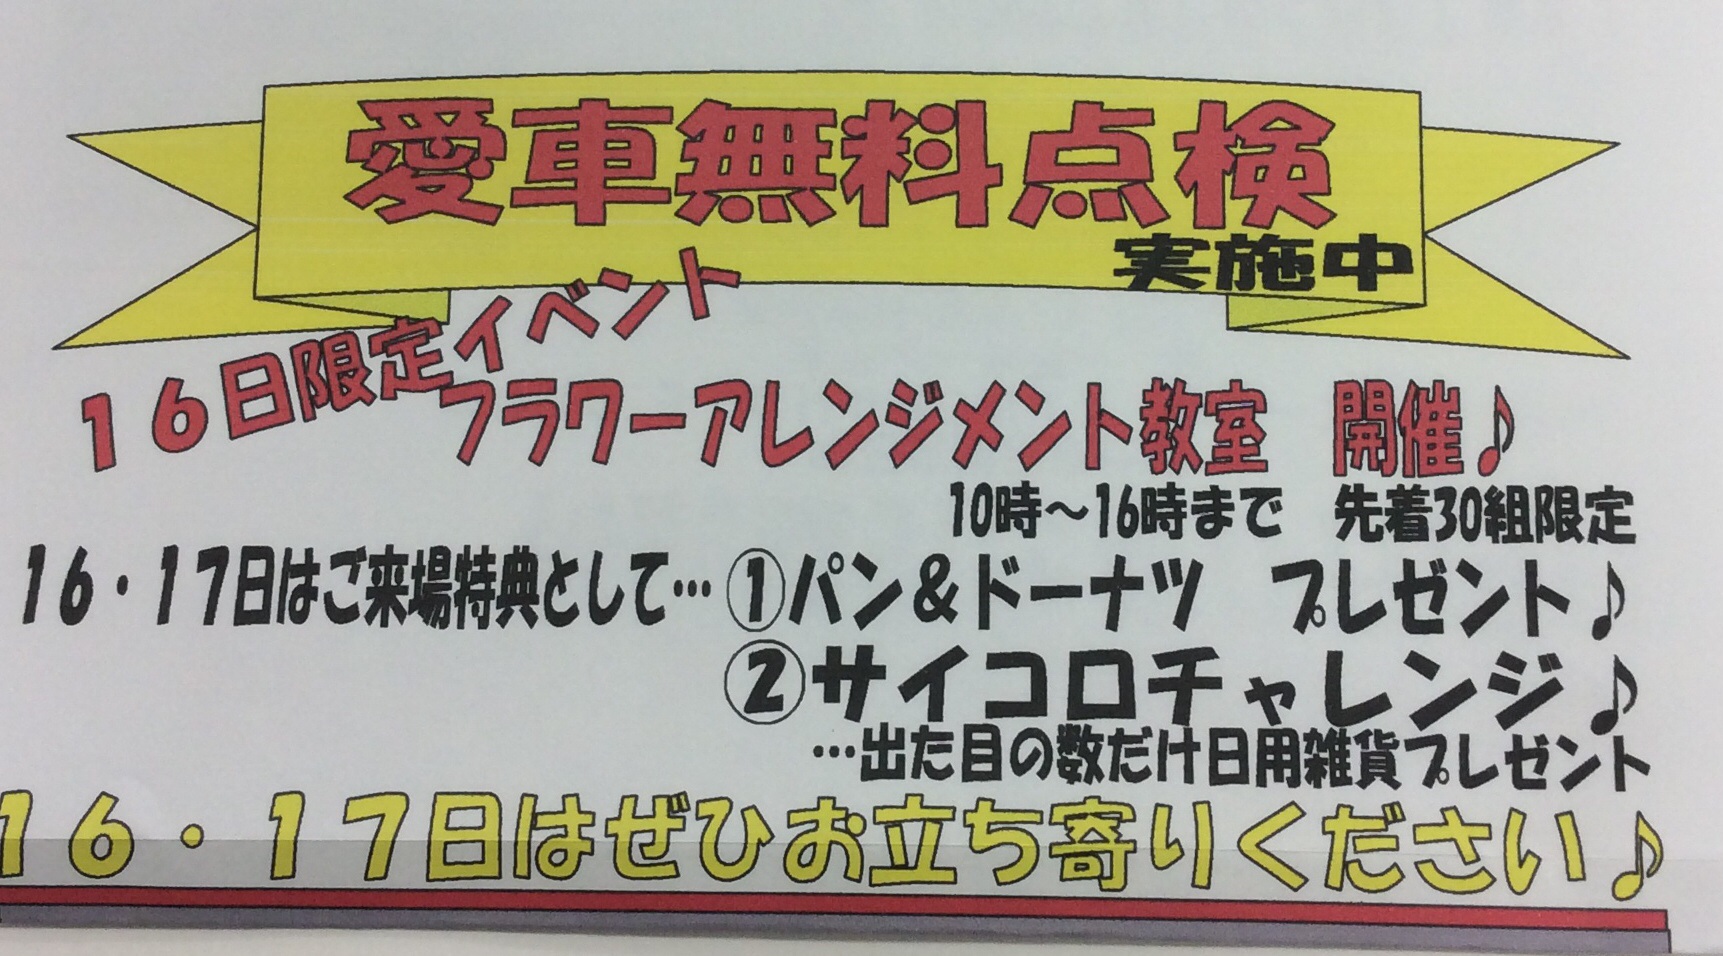 愛車無料点検
実施中
16日限定イベント
フラワーアレンジメント教室　開催♪
10時～16時まで　先着30組限定
16・17日はご来場特典として…①パン＆ドーナツ　プレゼント♪
②サイコロチャレンジ♪
…出た目の数だけ日用雑貨プレゼント
16・17日はぜひお立ち寄りください♪